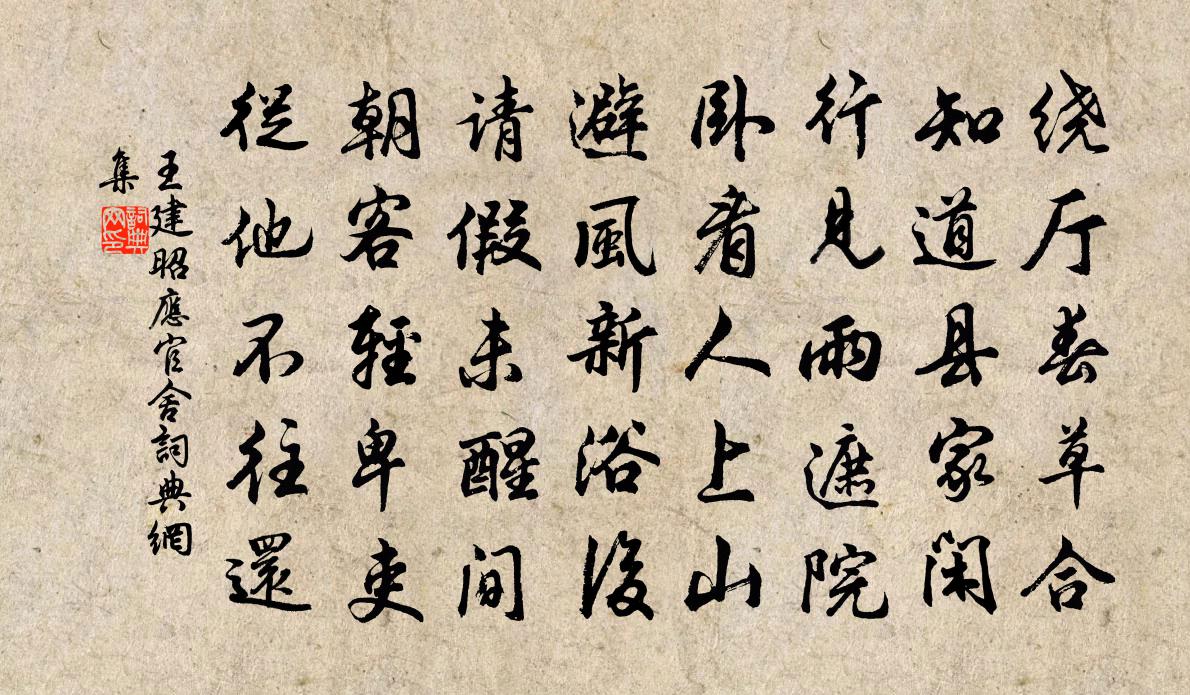 绕厅春草合
知道县家闲
行见雨遮院
卧看人上山
避風新浴後
请假未醒间
朝客輕卑吏
從他不往還
王建昭應官舍詞典網
集
詞典
网印